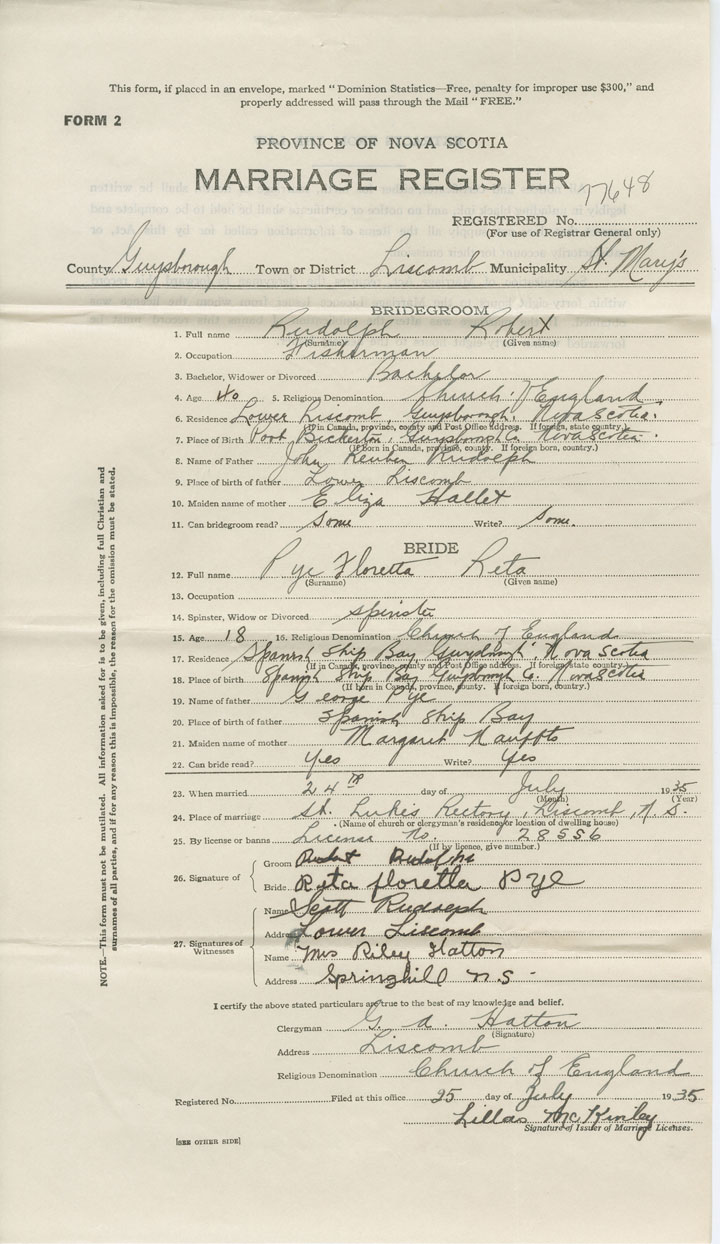 This form, if placed in an envelope, marked "Dominion Statistics—Free, penalty for improper use $300," and
properly addressed will pass through the Mail "FREE."
FORM 2
PROVINCE OF NOVA SCOTIA
MARRIAGE REGISTER
77648
REGISTERED No.
(For use of Registrar General only)
County Guysborough Town or District Liscomb Municipality St. Mary's
BRIDEGROOM
1. Full name Rudolph Robert
(Surname) (Given name)
2. Occupation Fisherman
3. Bachelor, Widower or Divorced Bachelor
4. Age 40 5. Religious Denomination Church of England
6. Residence Lower Liscomb, Guysborough, Nova Scotia.
(If in Canada, province, county and Post Office address. If foreign, state country.)
7. Place of Birth Port Bickerton, Guysborough Co Nova Scotia.
(If Born in Canada, province, county. If foreign born, country.)
8. Name of Father John Reuben Rudolph
9. Place of birth of father Lower Liscomb
10. Maiden name of mother Eliza Hallet
11. Can bridegroom read? Some Write? Some.
BRIDE
12. Full name Pye Floretta Reta
(Surname) (Given name)
13. Occupation
14. Spinster, Widow or Divorced Spinster
15. Age 18 16. Religious Denomination Church of England
17. Residence Spanish Ship Bay Guysborough Nova Scotia
(If in Canada, province, county and Post Office address. If foreign, state country.)
18. Place of birth Spanish Ship Bay Guysborough Co. Nova Scotia
(If born in Canada, province, county. If foreign born, country.)
19. Name of father George Pye
20. Place of birth of father Spanish Ship Bay
21. Maiden name of mother Margaret
22. Can bride read? Yes Write? Yes
23. When married 24th day of July 1935
(Month) (Year)
24. Place of marriage St. Luke's Rectory, Liscomb, N. S.
(Name of church or clergyman's residence or location of dwelling house)
25. By license or banns License No. 28556
(If by licence, give number.)
26. Signature of
Groom Robert Rudolph
Bride Reta floretta Pye
27. Signatures of Witnesses
Name Scott Rudolph
Address Lower Liscomb
Name Mrs Riley Hatton
Address Springhill N.S -
I certify the above stated particulars are true to the best of my knowledge and belief.
Clergyman G. A. Hatton
(Signature)
Address Liscomb
Religious Denomination Church of England
Registered No. Filed at this office 25 day of July 1935
Lillas McKinley
Signature of Issuer of Marriage Licenses.
[SEE OTHER SIDE]
NOTE.—This form must not be mutilated. All information asked for is to be given, including full Christian and
surnames of all parties, and if for any reason this is impossible, the reason for the omission must be stated.